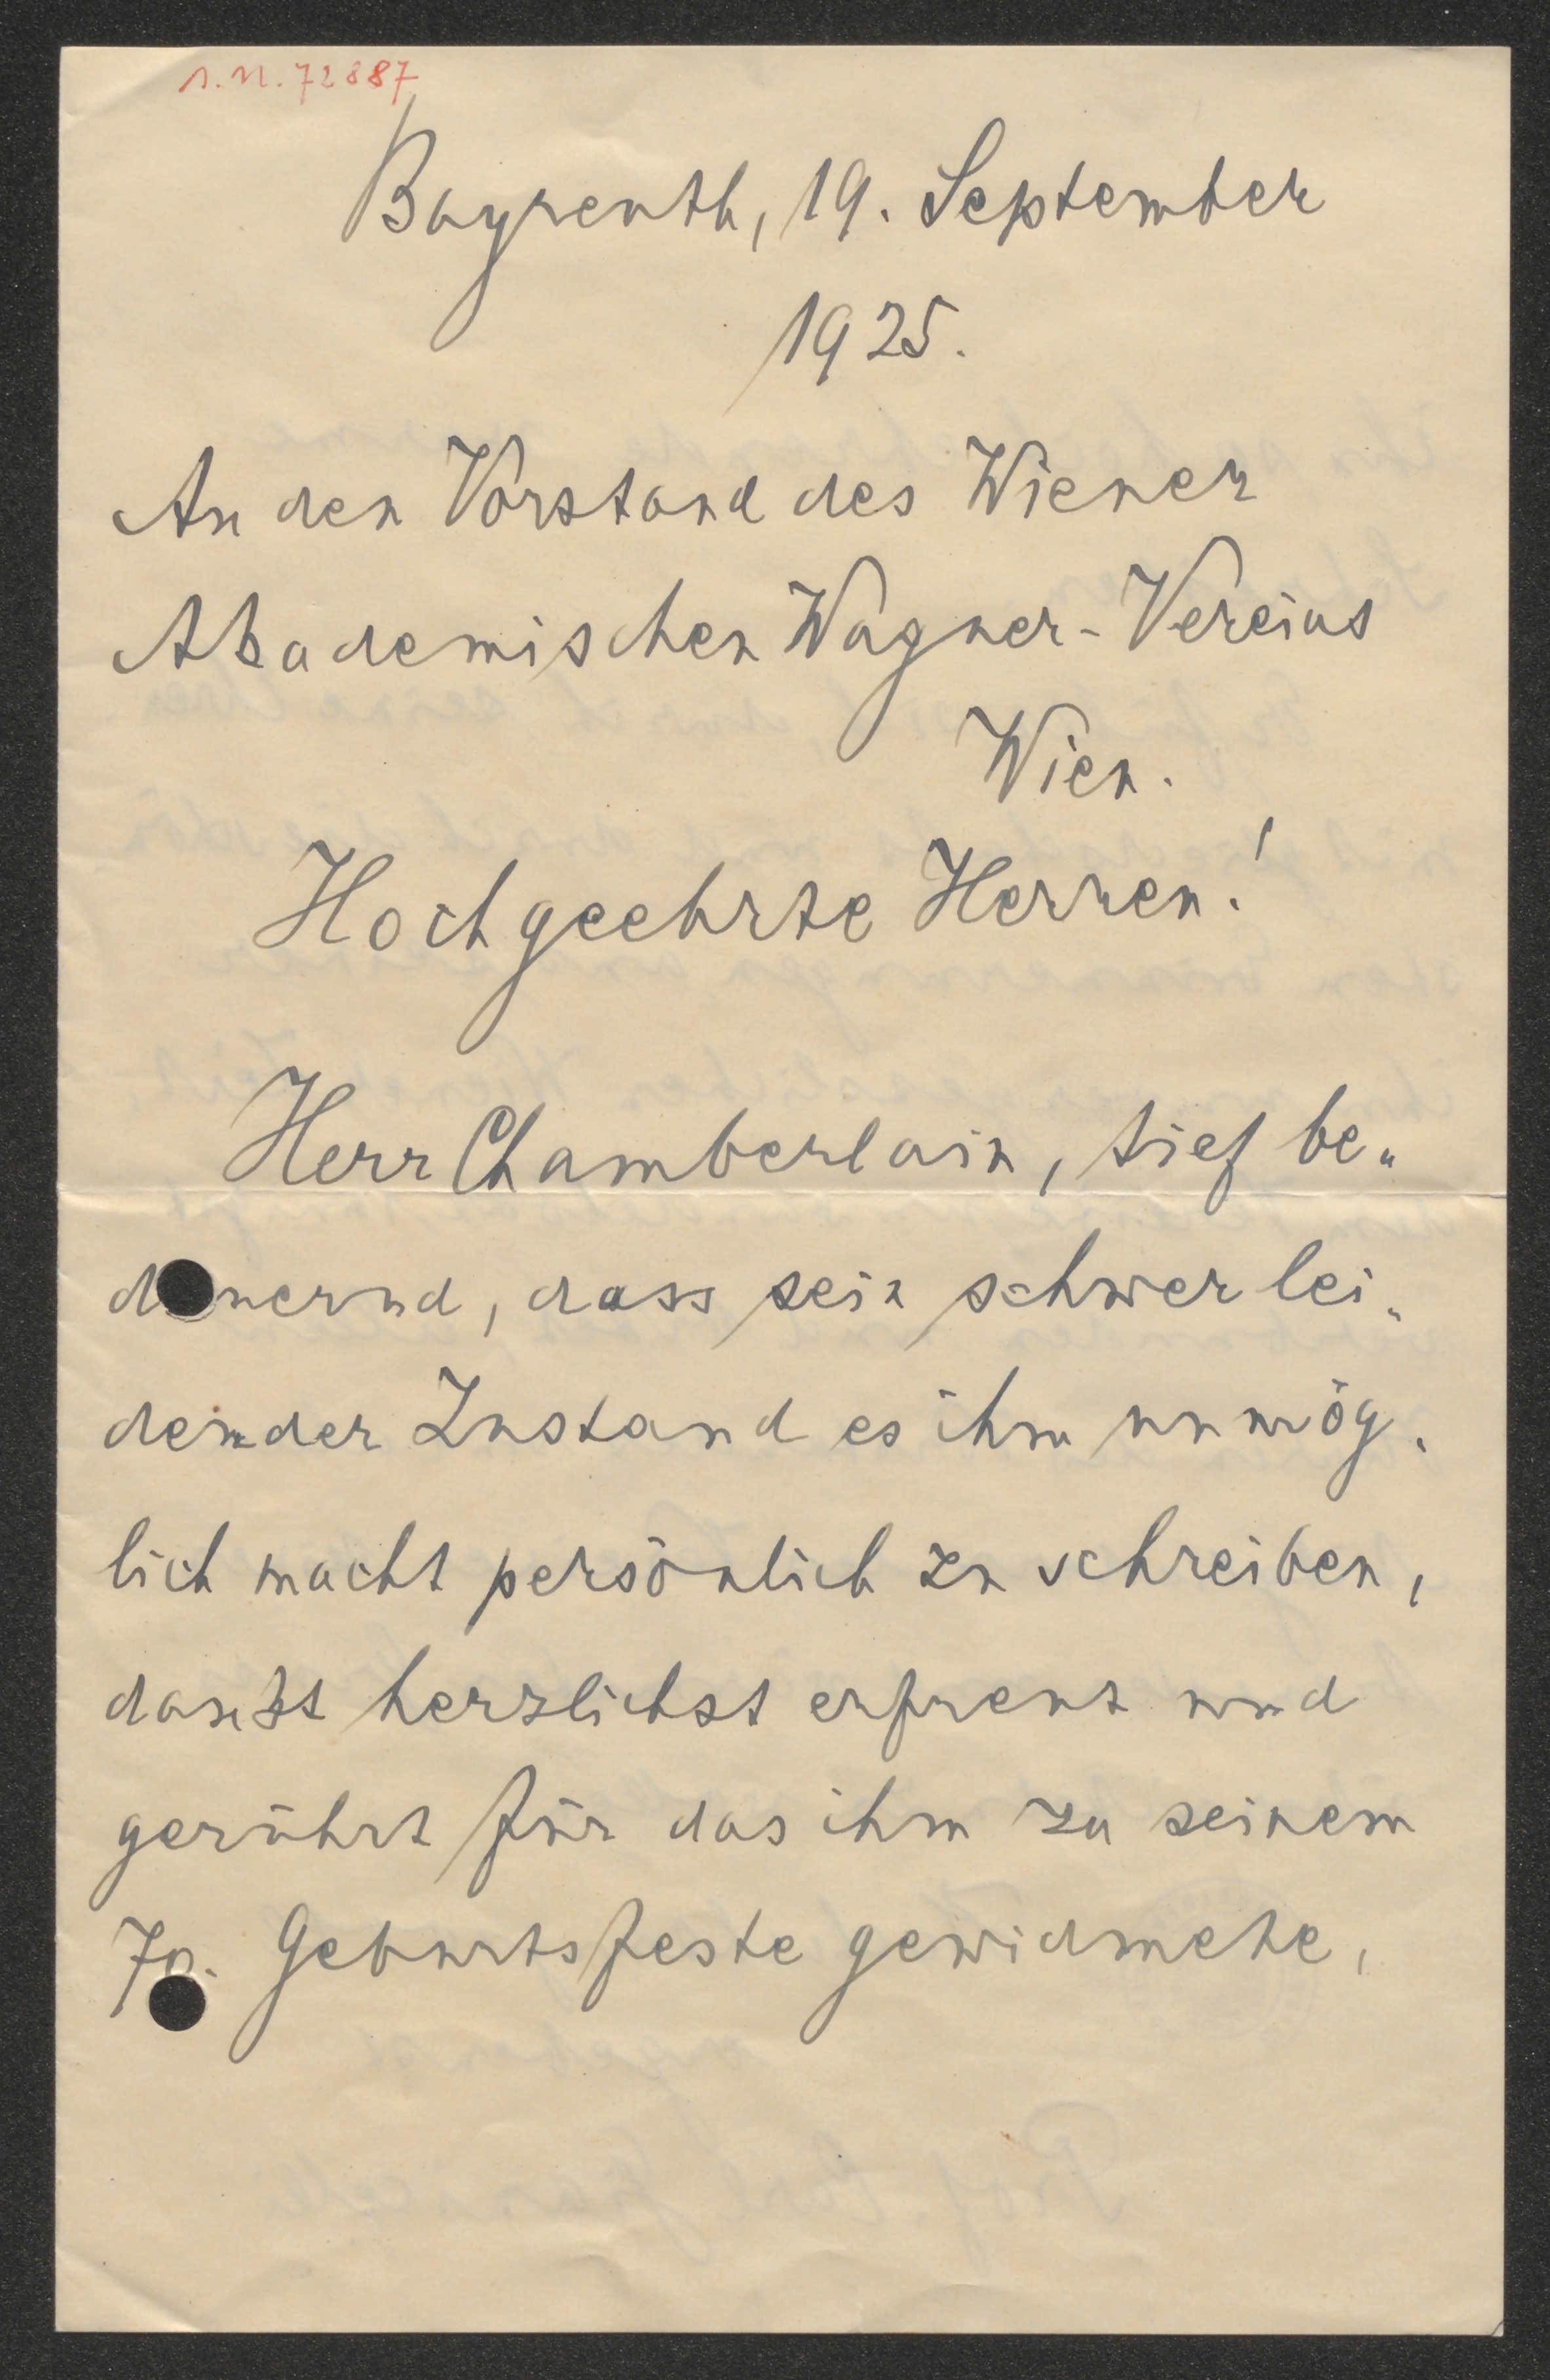 I.N. 72887
Bayreuth, 19. September
1925.
An den Vorstand des Wiener
Akademischen Wagner-Vereins
Wien.
Hochgeehrte Herren!
Herr Chamberlain, tief be„
dauernd, dass sein schwer lei„
dender Zustand es ihm unmög„
lich macht persönlich zu schreiben,
dankt herzlichst erfreut und
gerührt für das ihm zu seinem
70. Geburtsfeste gewidmete,